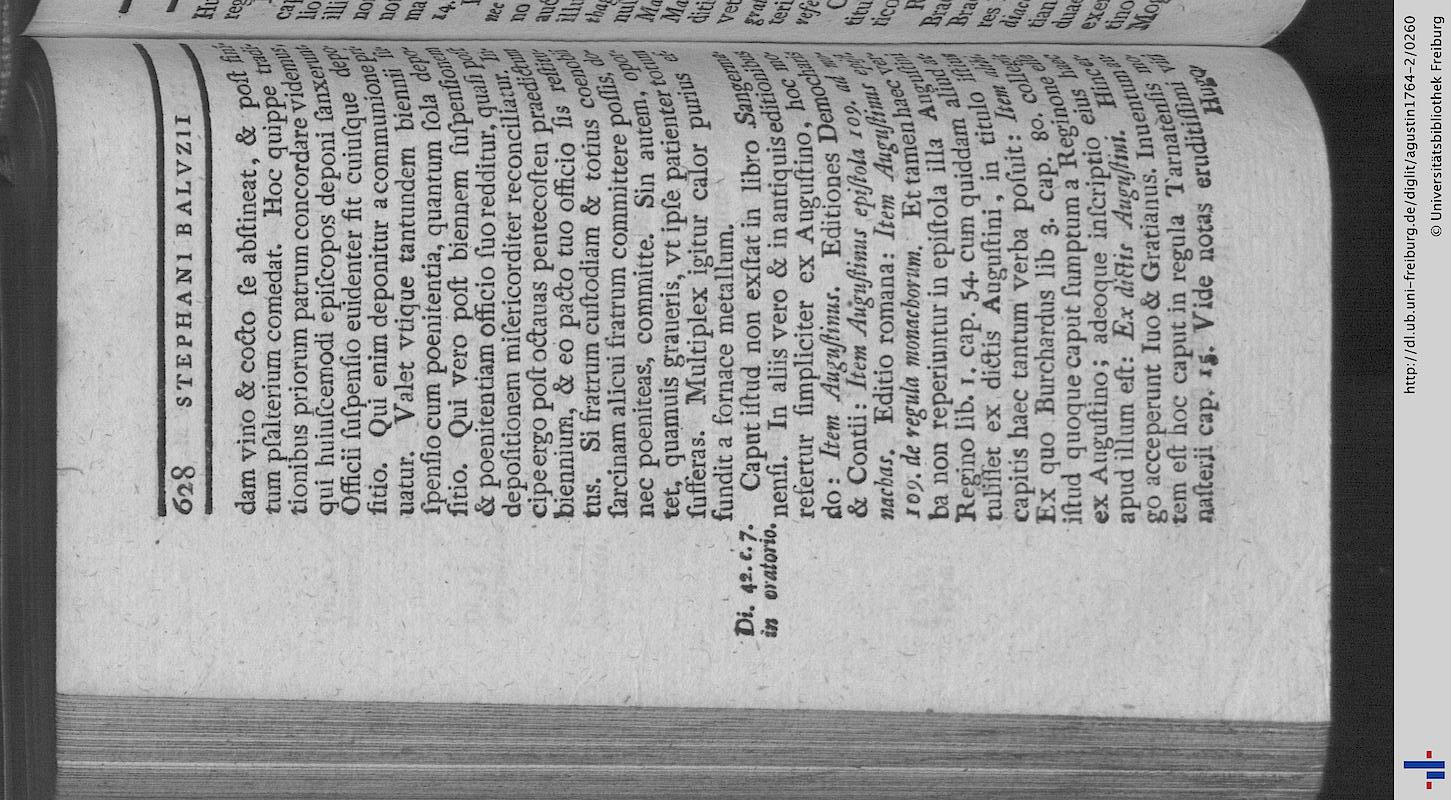 628 STEPHANI BALVZII
dam vino & cocto ſe abſtineat, & poſt
tum pſalterium comedat. Hoc quippe
tionibus priorum patrum concordare videmus,
qui huiuſcemodi epiſcopos deponi ſanxerunt
Officii ſuſpenſio euidenter fit cuiuſque
ſitio. Qui enim deponitur a communione
uatur. Valet vtique tantundem biennii
ſpenſio cum poenitentia, quantum ſola
ſitio. Qui vero poſt biennem ſuſpenſionem
& poenitentiam officio ſuo redditur, quaſi
depoſitionem miſericorditer reconciliatur.
cipe ergo poſt octauas pentecoſten praedictum
biennium, & eo pacto tuo officio ſis
tus. Si fratrum cuſtodiam & totius
ſarcinam alicui fratrum committere poſſis,
nec poeniteas, committe. Sin autem,
tet, quamuis graueris, vt ipſe patienter totum
ſufferas. Multiplex igitur calor purius
fundit a fornace metallum.
Di. 42. c. 7.
in oratorio.
Caput iſtud non exſtat in libro
nenſi. In aliis vero & in antiquis editionibus
refertur ſimpliciter ex Auguſtino, hoc
do: Item Auguſtinus. Editiones
& Contii: Item Auguſtinus epiſtola 109. ad
nachas. Editio romana: Item Auguſtinus
109. de regula monachorum. Et tamen haec
ba non reperiuntur in epiſtola illa
Regino lib. 1. cap. 54. cum quiddam aliud
tuliſſet ex dictis Auguſtini, in titulo
capitis haec tantum verba poſuit: Item
Ex quo Burchardus lib 3. cap. 80.
iſtud quoque caput ſumptum a Reginone
ex Auguſtino; adeoque inſcriptio eius
apud illum eſt: Ex dictis Auguſtini.
go acceperunt Iuo & Gratianus. Inuentum
tem eſt hoc caput in regula Tarnatenſis
naſterii cap. 15. Vide notas eruditiſſimi
http://dl.ub.uni-freiburg.de/diglit/agustin1764-2/0260
© Universitätsbibliothek Freiburg